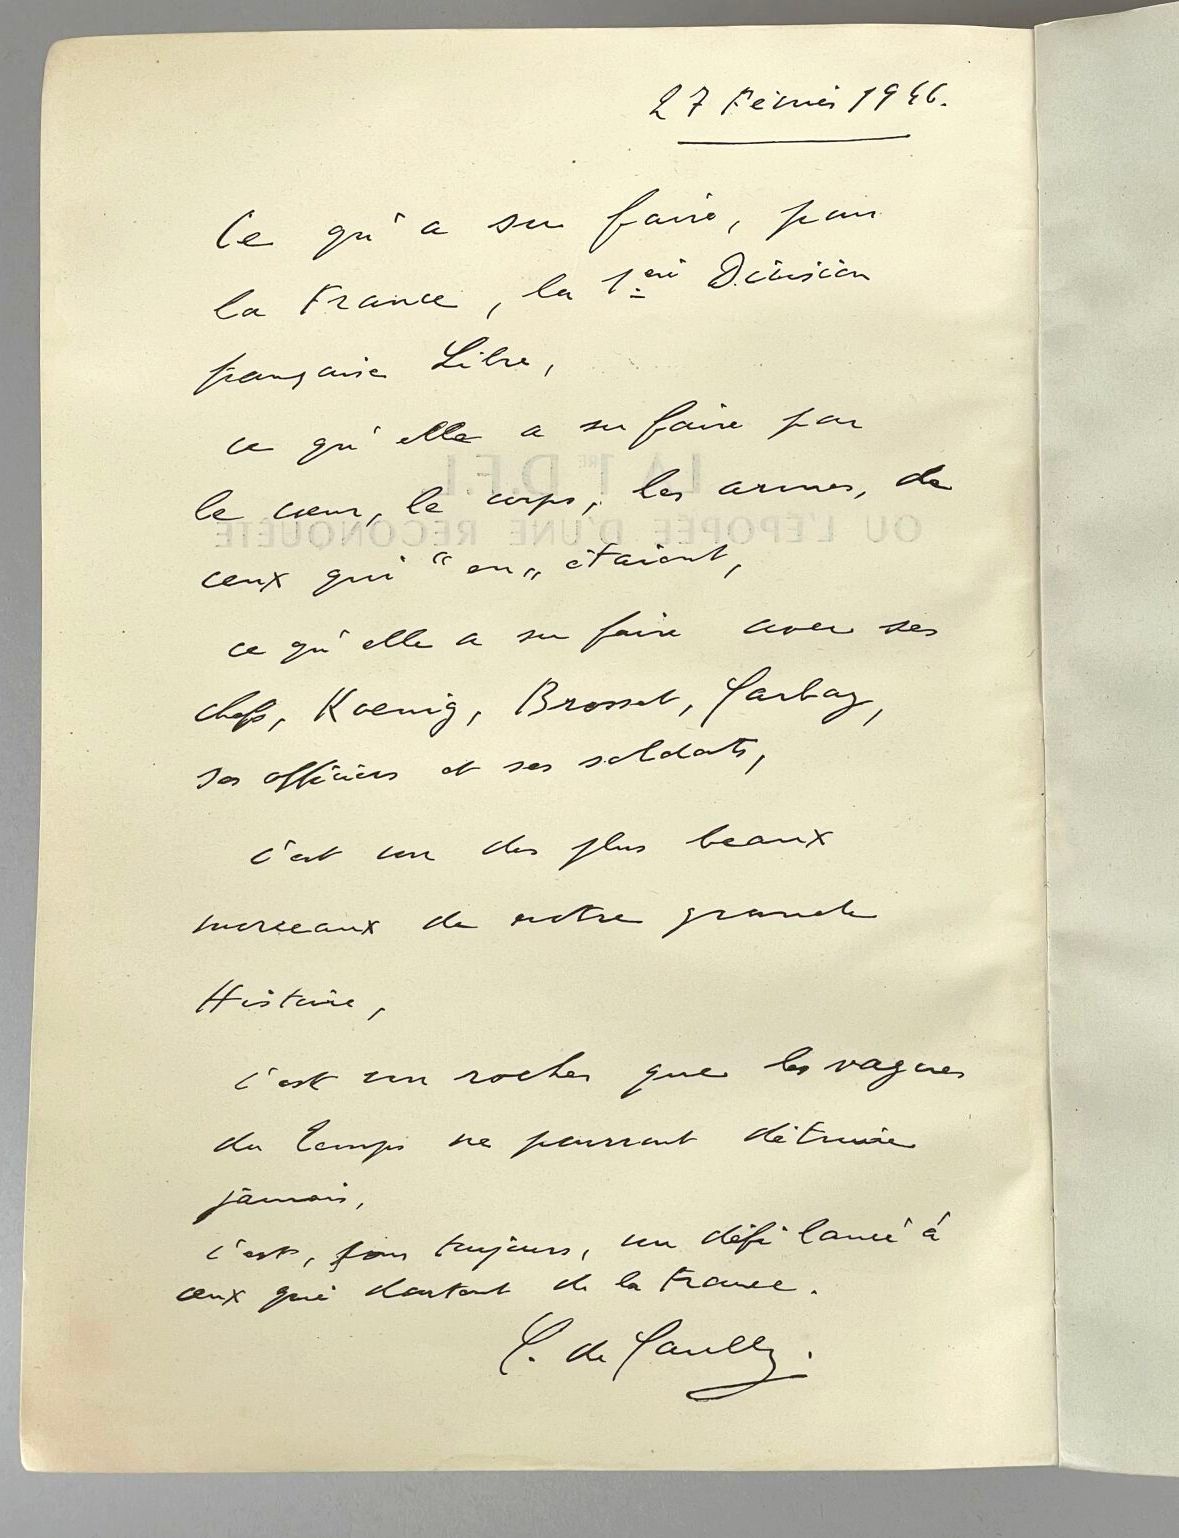 27 Février 1946.
Ce qu'a su faire, pour
la France, la 1ère Division
française Libre,
ce qu'elle a su faire par
le cœur, le corps, les armes, de
ceux qui "en„ étaient,
ce qu'elle a su faire avec ses
chefs, Koenig, Brosset, Garbay,
ses officiers et ses soldats,
c'est un des plus beaux
morceaux de notre grande
Histoire,
c'est un rocher que les vagues
du temps ne pourront détruire
jamais,
c'est, pour toujours, un défi lancé à
ceux qui doutent de la France.
C. de Gaulle.
LA 1re D.F.L.
OU L'ÉPOPÉE D'UNE RECONQUÊTE